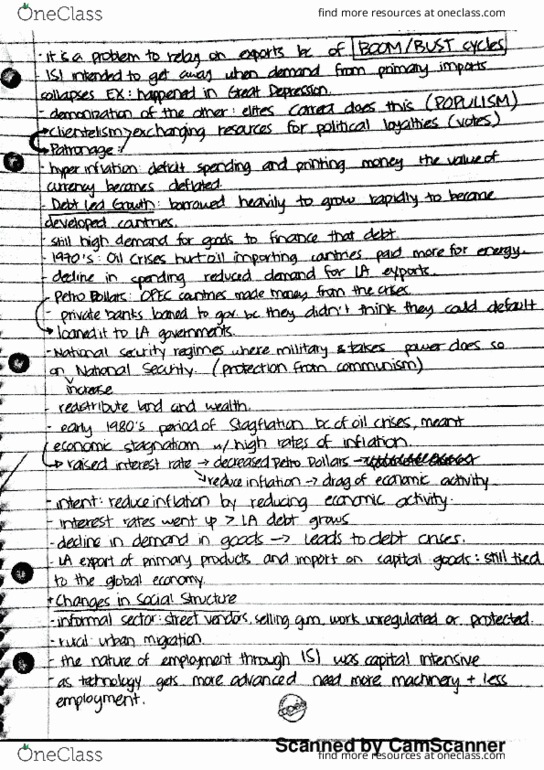 OneClass
find more resources at oneclass.com
- it is a problem to relay on exports bc of BOOM/BUST cycles
- ISI intended to get away when demand from primary imports
collapses EX: happened in Great Depression.
- demonization of the other: elites does this (POPULISM)
- clientelism → exchanging resources for political loyalties (votes)
→ Patronage:
- hyper inflation: deficit spending and printing money the value of
currency becomes deflated.
- Debt Led Growth: borrowed heavily to grow rapidly to become
developed countries.
- still high demand for goods to finance that debt
- 1970's: Oil Crises hurt oil importing countries paid more for energy.
- decline in spending reduced demand for LA exports.
- Petro Dollars: OPEC countries made money from the crises.
- private banks loaned to gov. bc they didn't think they could default
→ loaned it to LA governments.
- National security regimes where military takes power does so
on National Security. (protection from communism)
increase
- redistribute land and wealth.
- early 1980's period of Stagflation bc of oil crises, meant
economic stagnation w/ high rates of inflation.
→ raised interest rate → decreased Petro Dollars →
→ reduce inflation → drag of economic activity
- intent: reduce inflation by reducing economic activity.
- interest rates went up > LA debt grows
- decline in demand in goods → leads to debt crises.
- LA export of primary products and import on capital goods: still tied
to the global economy.
* Changes in Social Structure
- informal sector: street vendors, selling gum, work unregulated or protected.
- rural: urban migration
- the nature of employment through ISI was capital intensive
- as technology gets more advanced need more machinery + less
employment.
Scanned by CamScanner
OneClass
find more resources at oneclass.com